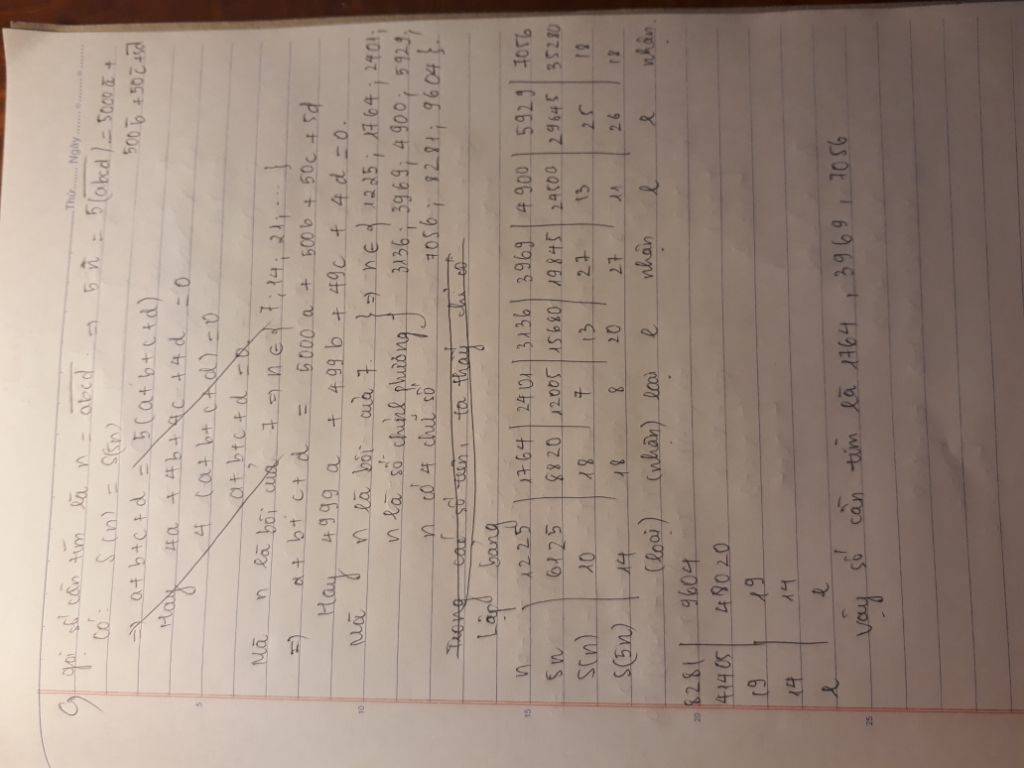 Thứ........ Ngày..........
9) gọi số cần tìm là n = abcd ⇒ 5n = 5(abcd) = 5000a +
500b + 50c + 5d
Có: S(n) = S(5n)
⇒ a+b+c+d = 5(a+b+c+d)
Hay 4a + 4b + 4c + 4d = 0
4 (a+b+c+d) = 0
a+b+c+d = 0
Mà n là bội của 7 ⇒ n ∈ { 7; 14; 21; ... }
⇒ a + b + c + d = 5000a + 500b + 50c + 5d
Hay 4999a + 499b + 49c + 4d = 0.
Mà n là bội của 7 } ⇒ n ∈ { 1225; 1764; 2401;
n là số chính phương } 3136; 3969; 4900; 5929;
n có 4 chữ số 7056; 8281; 9604 }.
Trong các số trên, ta thấy chỉ có
Lập bảng
n | 1225 | 1764 | 2401 | 3136 | 3969 | 4900 | 5929 | 7056
5n | 6125 | 8820 | 12005 | 15680 | 19845 | 24500 | 29645 | 35280
S(n) | 10 | 18 | 7 | 13 | 27 | 13 | 25 | 18
S(5n) | 14 | 18 | 8 | 20 | 27 | 11 | 26 | 18
(loại) (nhận) loại l nhận l l nhận
8281 | 9604
41405 | 48020
19 | 19
14 | 14
l l
Vậy số cần tìm là 1764, 3969, 7056
5
10
15
20
25